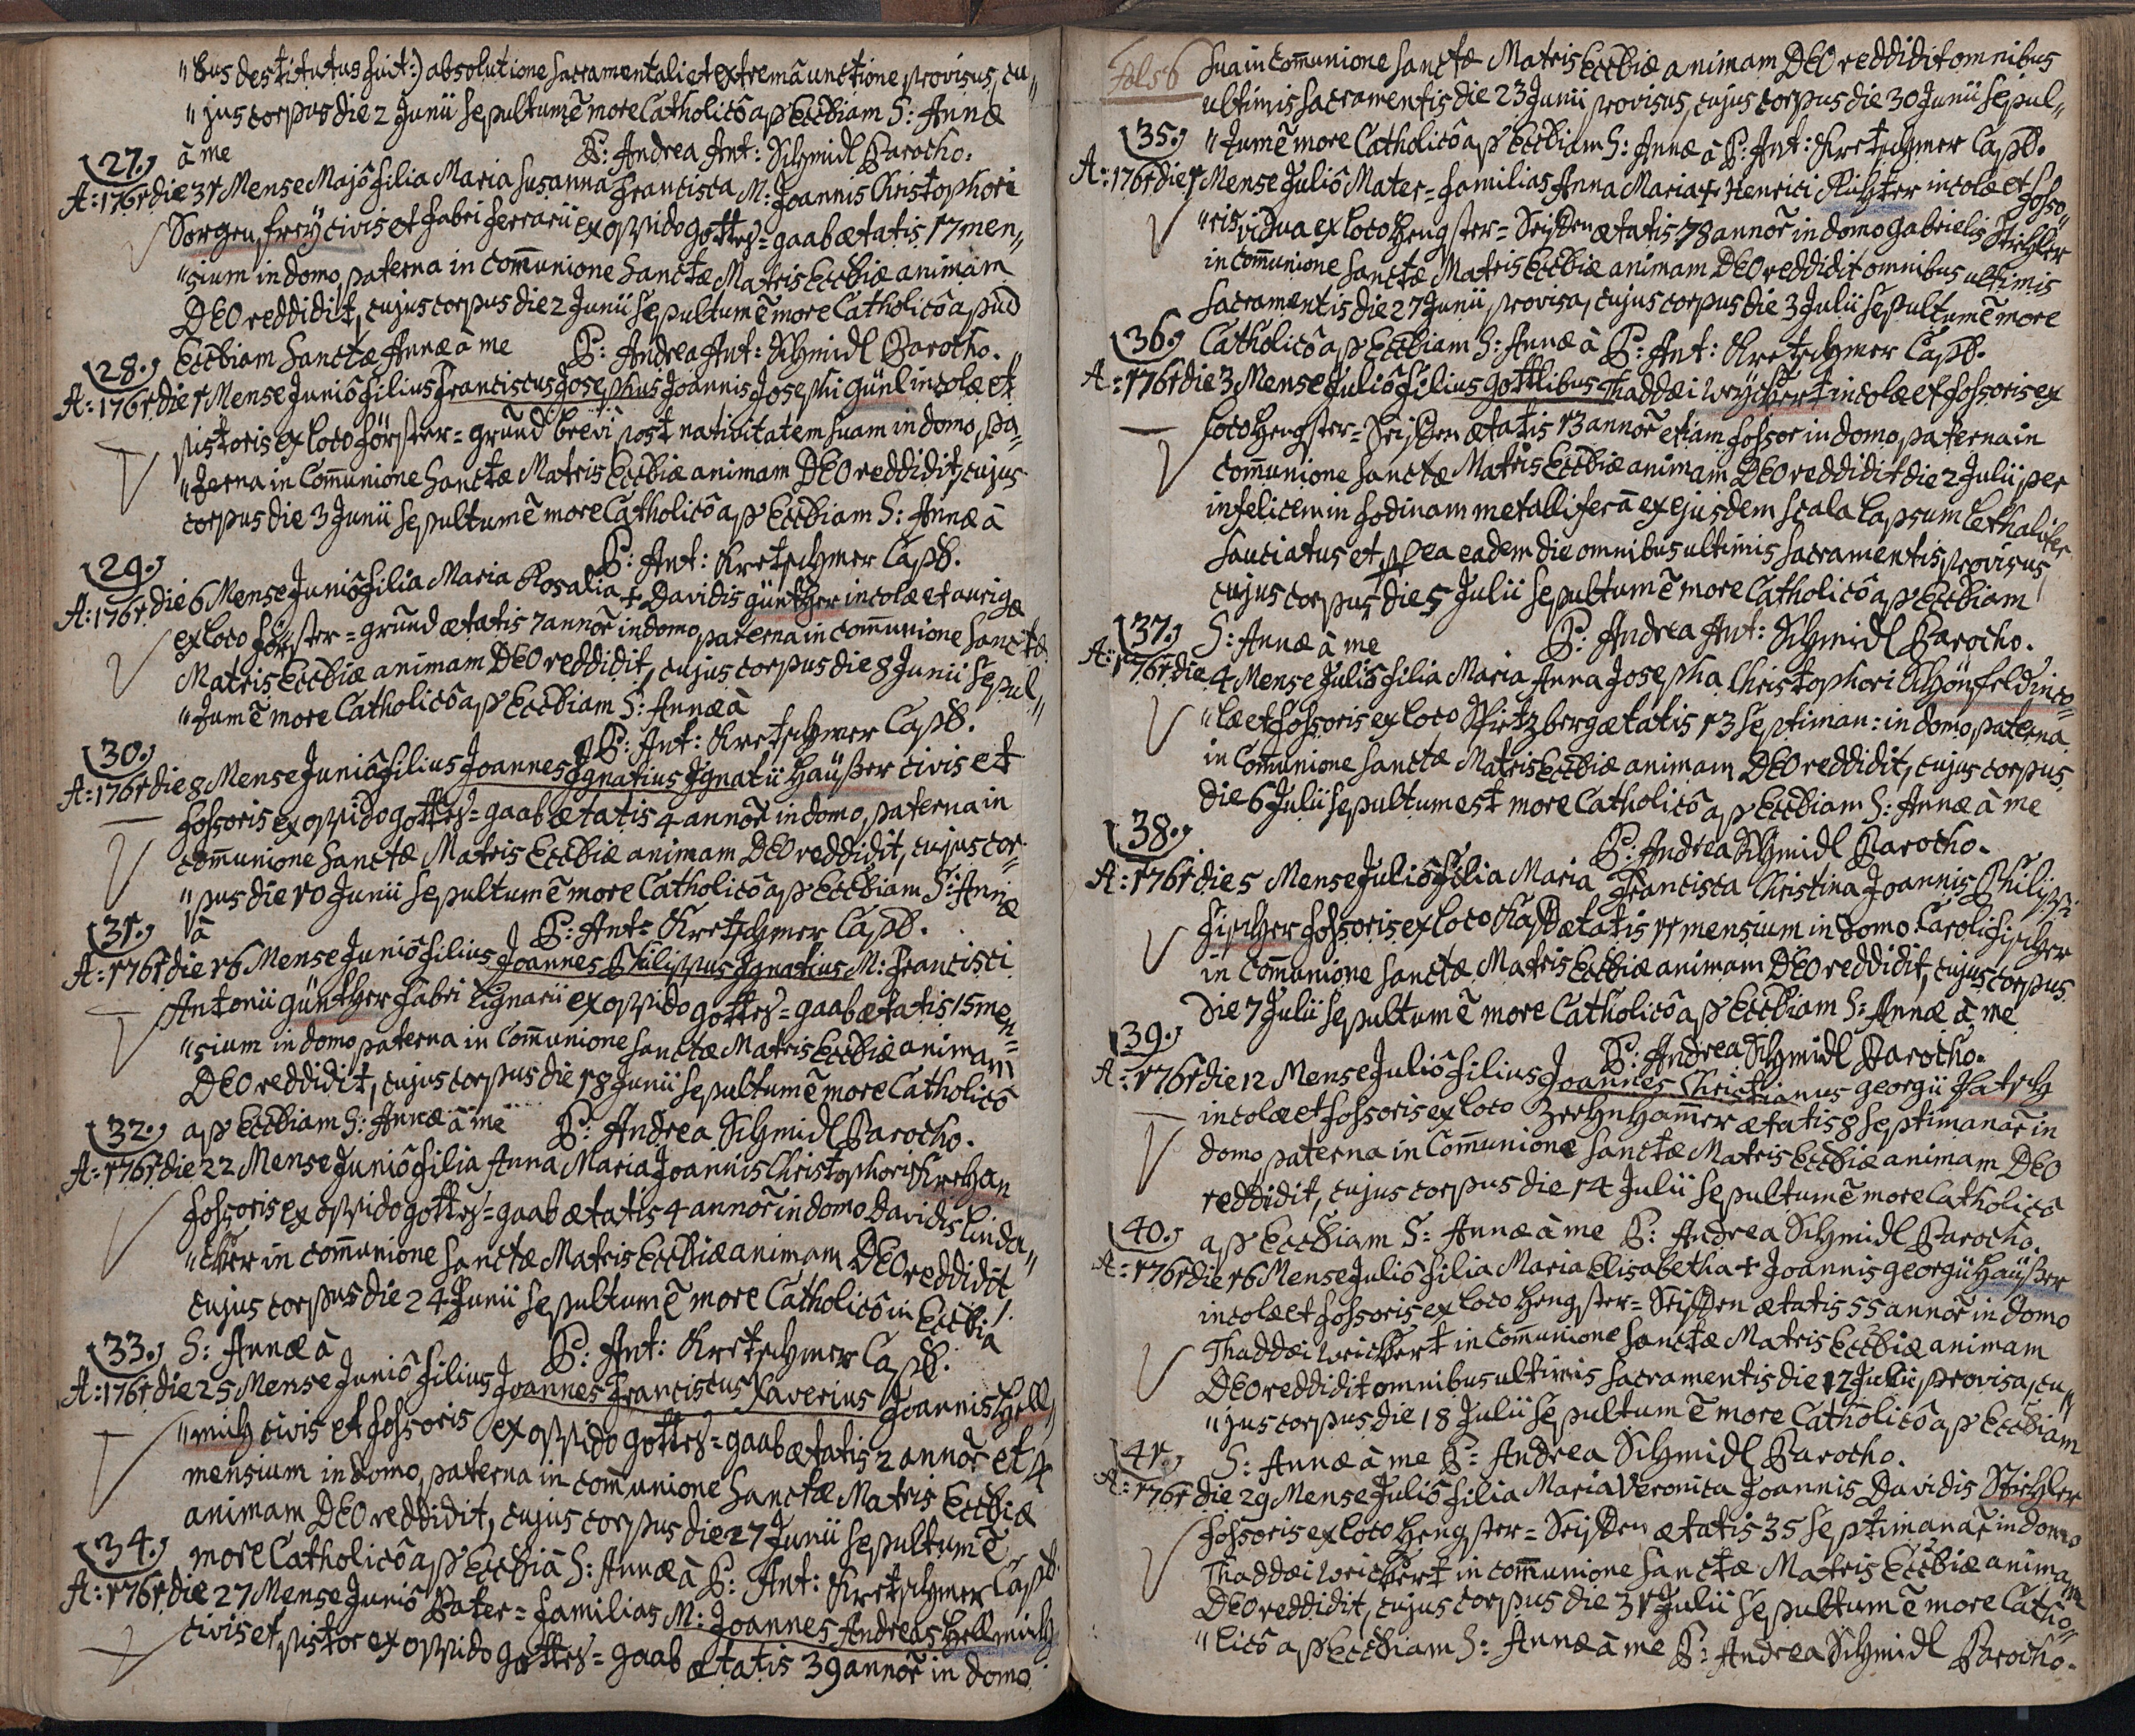 "bus destitutus fuit:) absolutione sacramentali et extremâ unctione provisus, cu"
"jus corpus die 2 Junii sepultum ē more Catholicô ap Eccliam S: Annæ
à me P: Andrea Ant: Schmidl Parocho.
27.
A: 1761 die 31 Mense Majô filia Maria Susanna Francisca M: Joannis Christophori
Sorgen frey civis et fabri ferrarii ex oppido gottes=gaab ætatis 17 men"
"sium in domo paterna in communione Sanctæ Matris Eccliæ animam
DEO reddidit, cujus corpus die 2 Junii sepultum ē more Catholicô apud
Eccliam Sanctæ Annæ à me P: Andrea Ant: Schmidl Parocho.
28.
A: 1761 die 1 Mense Juniô filius Franciscus Josephus Joannis Josephi Günl incolæ et
pistoris ex loco förster=grund brevi post nativitatem suam in domo pa"
"terna in Communione Sanctæ Matris Eccliæ animam DEO reddidit, cujus
corpus die 3 Junii sepultum ē more Catholicô ap Eccliam S: Annæ à
P: Ant: Kretschmer Capll.
29.
A: 1761 die 6 Mense Juniô filia Maria Rosalia + Davidis günther incolæ et aurigæ
ex loco förster=grund ætatis 7 annor in domo paterna in communione Sanctæ
Matris Eccliæ animam DEO reddidit, cujus corpus die 8 Junii sepul"
"tum ē more Catholicô ap Eccliam S: Annæ à
P: Ant: Kretschmer Capll.
30.
A: 1761 die 8 Mense Juniô filius Joannes Ignatius Ignatii Haüßer civis et
fossoris ex oppido gottes=gaab ætatis 4 annor in domo paterna in
communione Sanctæ Matris Eccliæ animam DEO reddidit, cujus cor"
"pus die 10 Junii sepultum ē more Catholicô ap Eccliam S: Annæ
à P: Ant: Kretschmer Capll.
31.
A: 1761 die 16 Mense Juniô filius Joannes Philippus Ignatius M: Francisci
Antonii günther fabri lignarii ex oppido gottes=gaab ætatis 15 men"
"sium in domo paterna in Communione Sanctæ Matris Eccliæ animam
DEO reddidit, cujus corpus die 18 Junii sepultum ē more Catholicô
ap Eccliam S: Annæ à me P: Andrea Schmidl Parocho.
32.
A: 1761 die 22 Mense Juniô filia Anna Maria Joannis Christophori
fossoris ex oppido gottes=gaab ætatis 4 annor in domo Davidis linda"
"cker in communione Sanctæ Matris Eccliæ animam DEO reddidit
cujus corpus die 24 Junii sepultum ē more Catholicô in Ecclia
S: Annæ à P: Ant: Kretschmer Capll.
33.
A: 1761 die 25 Mense Juniô filius Joannes Franciscus Xaverius Joannis Hell"
"mich civis et fossoris ex oppido gottes=gaab ætatis 2 annor et 4
mensium in domo paterna in communione Sanctæ Matris Eccliæ
animam DEO reddidit, cujus corpus die 27 Junii sepultum ē
more Catholicô ap Eccliā S: Annæ à P: Ant: Kretschmer Capll.
34.
A: 1761 die 27 Mense Juniô Pater=familias M: Joannes Andreas Hellmich
civis et pistor ex oppido gottes=gaab ætatis 39 annor in domo
Fol 56
sua in communione Sanctæ Matris Eccliæ animam DEO reddidit omnibus
ultimis sacramentis die 23 Junii provisus, cujus corpus die 30 Junii sepul"
"tum ē more Catholicô ap Eccliam S: Annæ à P: Ant: Kretschmer Capll.
35.
A: 1761 die 1 Mense Juliô Mater=familias Anna Maria + Henrici Richter incolæ et fosso"
"ris vidua ex loco Hengster=Seiffen ætatis 78 annor in domo Gabrielis Stichler
in communione Sanctæ Matris Eccliæ animam DEO reddidit omnibus ultimis
sacramentis die 27 Junii provisa, cujus corpus die 3 Julii sepultum ē more
Catholicô ap Eccliam S: Annæ à P: Ant: Kretschmer Capll.
36.
A: 1761 die 3 Mense Juliô filius gottlibus Thaddæi Weickert incolæ et fossoris ex
loco Hengster=Seiffen ætatis 13 annor etiam fossor in domo paterna in
communione Sanctæ Matris Eccliæ animam DEO reddidit die 2 Julii per
infelicem in fodinam metalliferā ex ejusdem scala lapsum lethaliter
sauciatus et ea eadem die omnibus ultimis sacramentis provisus,
cujus corpus die 5 Julii sepultum ē more Catholicô ap Eccliam
S: Annæ à me P: Andrea Ant: Schmidl Parocho.
37.
A: 1761 die 4 Mense Juliô filia Maria Anna Josepha Christophori Schönfeld inco"
"læ et fossoris ex loco Spitzberg ætatis 13 Septiman: in domo paterna
in Communione Sanctæ Matris Eccliæ animam DEO reddidit, cujus corpus
die 6 Julii sepultum est more Catholicô ap Eccliam S: Annæ à me
P: Andrea Schmidl Parocho.
38.
A: 1761 die 5 Mense Juliô filia Maria Francisca Christina Joannis Philippi
Fischer fossoris ex loco Kaff ætatis 11 mensium in domo Caroli Fischer
in Communione Sanctæ Matris Eccliæ animam DEO reddidit, cujus corpus
die 7 Julii sepultum ē more Catholicô ap Eccliam S: Annæ à me
P: Andrea Schmidl Parocho.
39.
A: 1761 die 12 Mense Juliô filius Joannes Christianus georgii
incolæ et fossoris ex loco Zechnhammer ætatis 8 septimanar in
domo paterna in Communione Sanctæ Matris Eccliæ animam DEO
reddidit, cujus corpus die 14 Julii sepultum ē more Catholicô
ap Eccliam S: Annæ à me P: Andrea Schmidl Parocho.
40.
A: 1761 die 16 Mense Juliô filia Maria Elisabetha + Joannis georgii Haüßer
incolæ et fossoris ex loco Hengster=Seiffen ætatis 55 annor in domo
Thaddæi Weickert in Communione Sanctæ Matris Eccliæ animam
DEO reddidit omnibus ultimis sacramentis die 12 Julii provisa, cu"
"jus corpus die 18 Julii sepultum ē more Catholicô ap Eccliam
S: Annæ à me P: Andrea Schmidl Parocho.
41.
A: 1761 die 29 Mense Juliô filia Maria Veronica Joannis Davidis Stichler
fossoris ex loco Hengster=Seiffen ætatis 35 septimanar in domo
Thaddæi Weickert in communione Sanctæ Matris Eccliæ animam
DEO reddidit, cujus corpus die 31 Julii sepultum ē more Catho"
"licô ap Eccliam S: Annæ à me P: Andrea Schmidl Parocho.